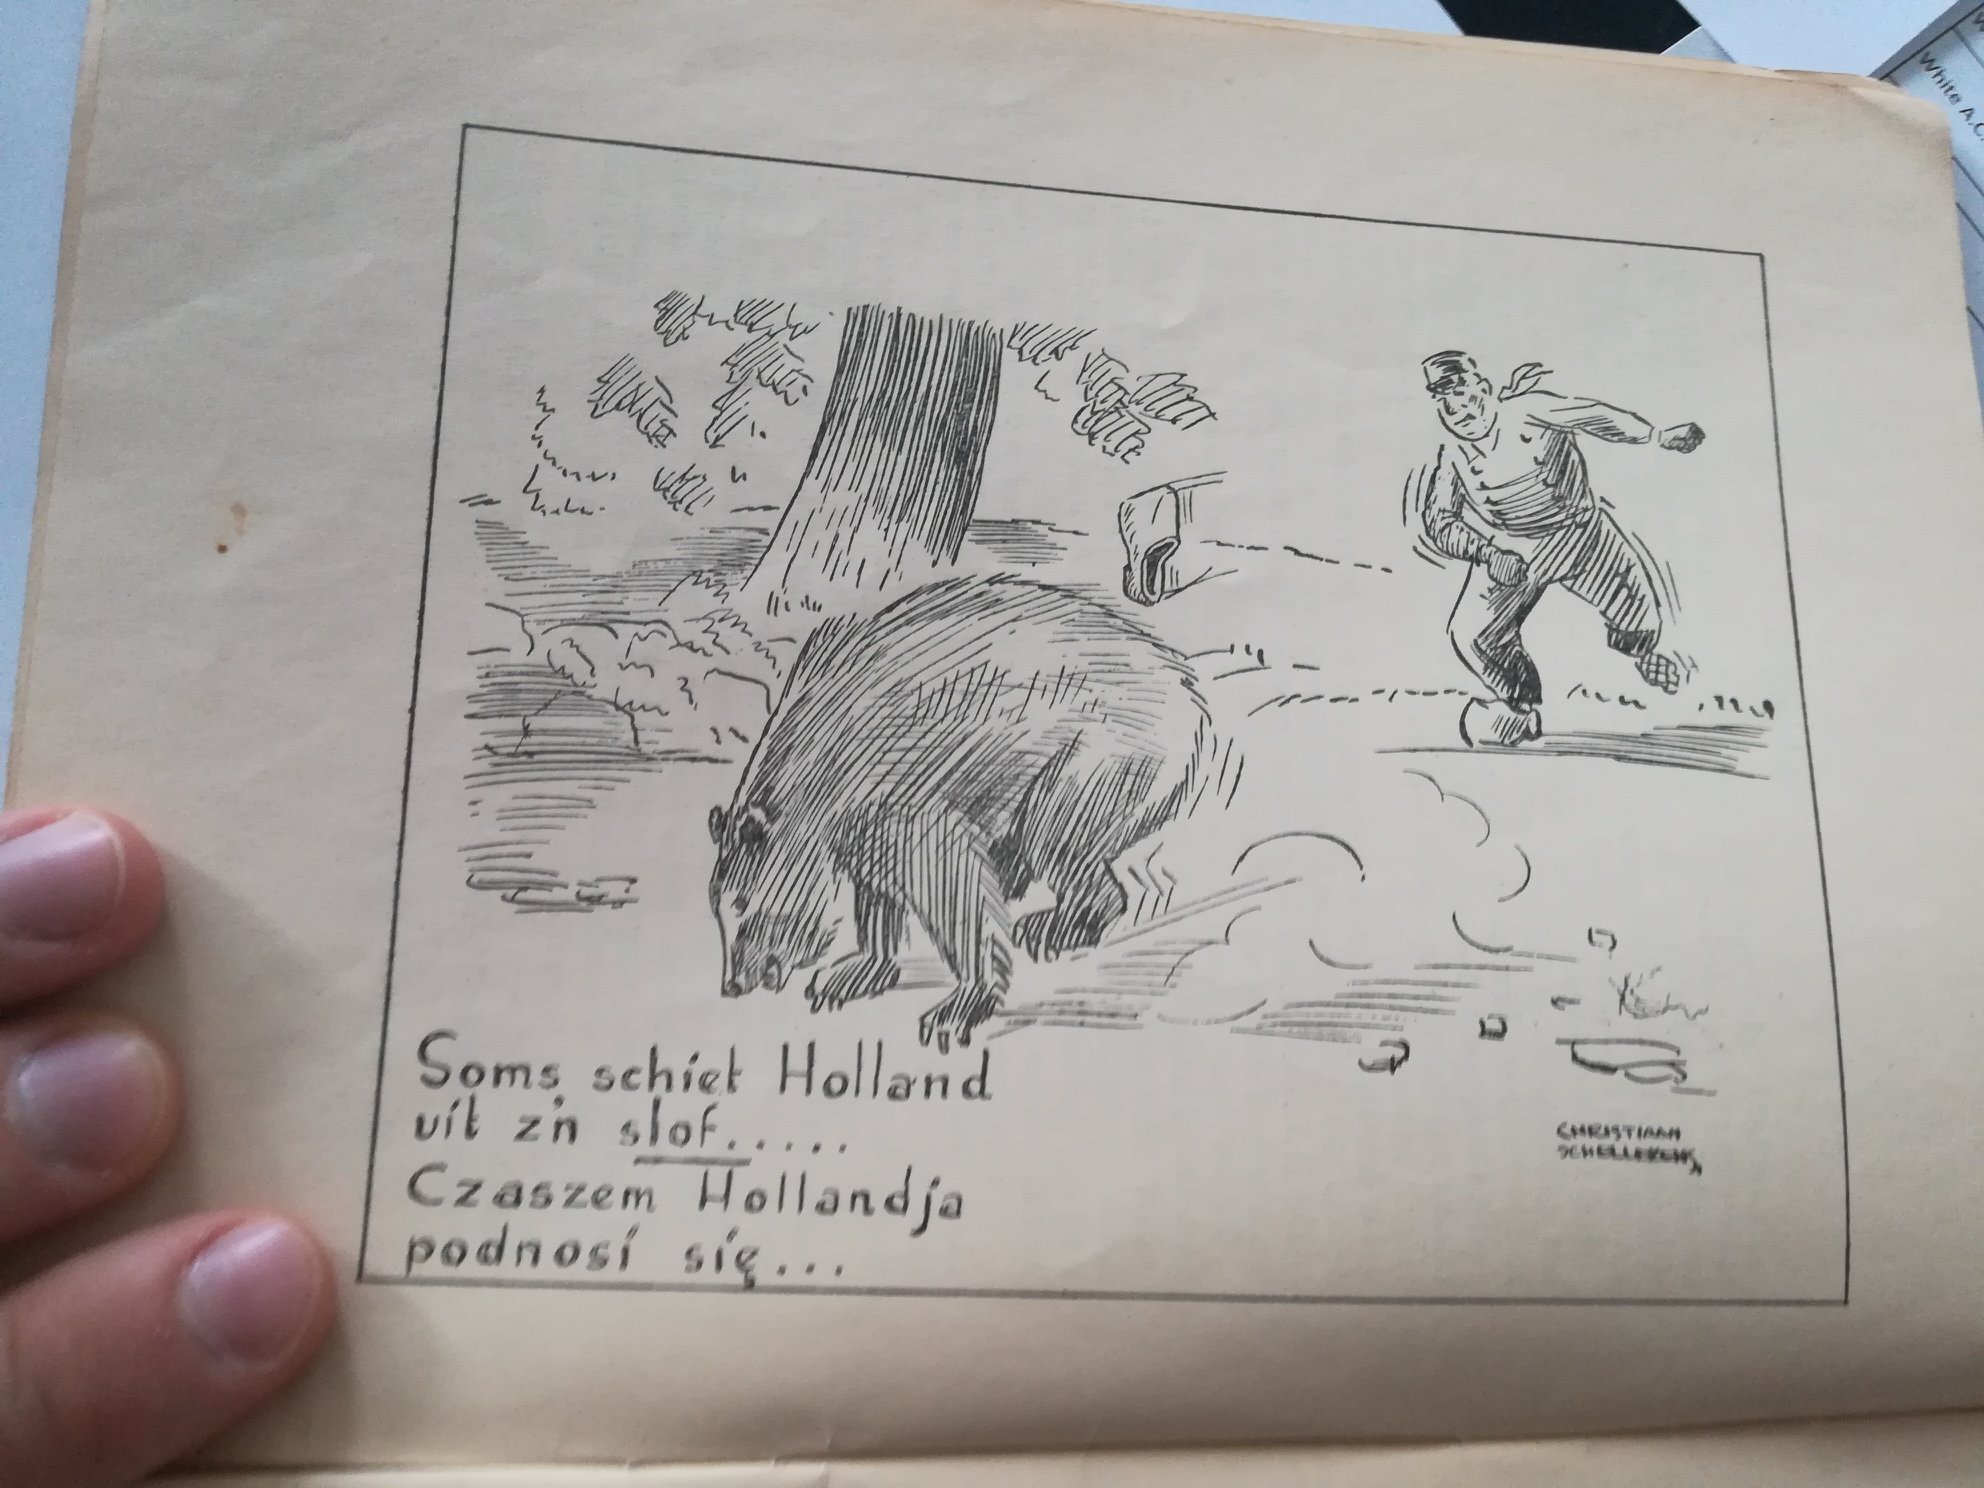 White A.C.
Soms schiet Holland
uit z'n slof.....
Czaszem Hollandja
podnosi się...
CHRISTIAAN
SCHELLEKENS,